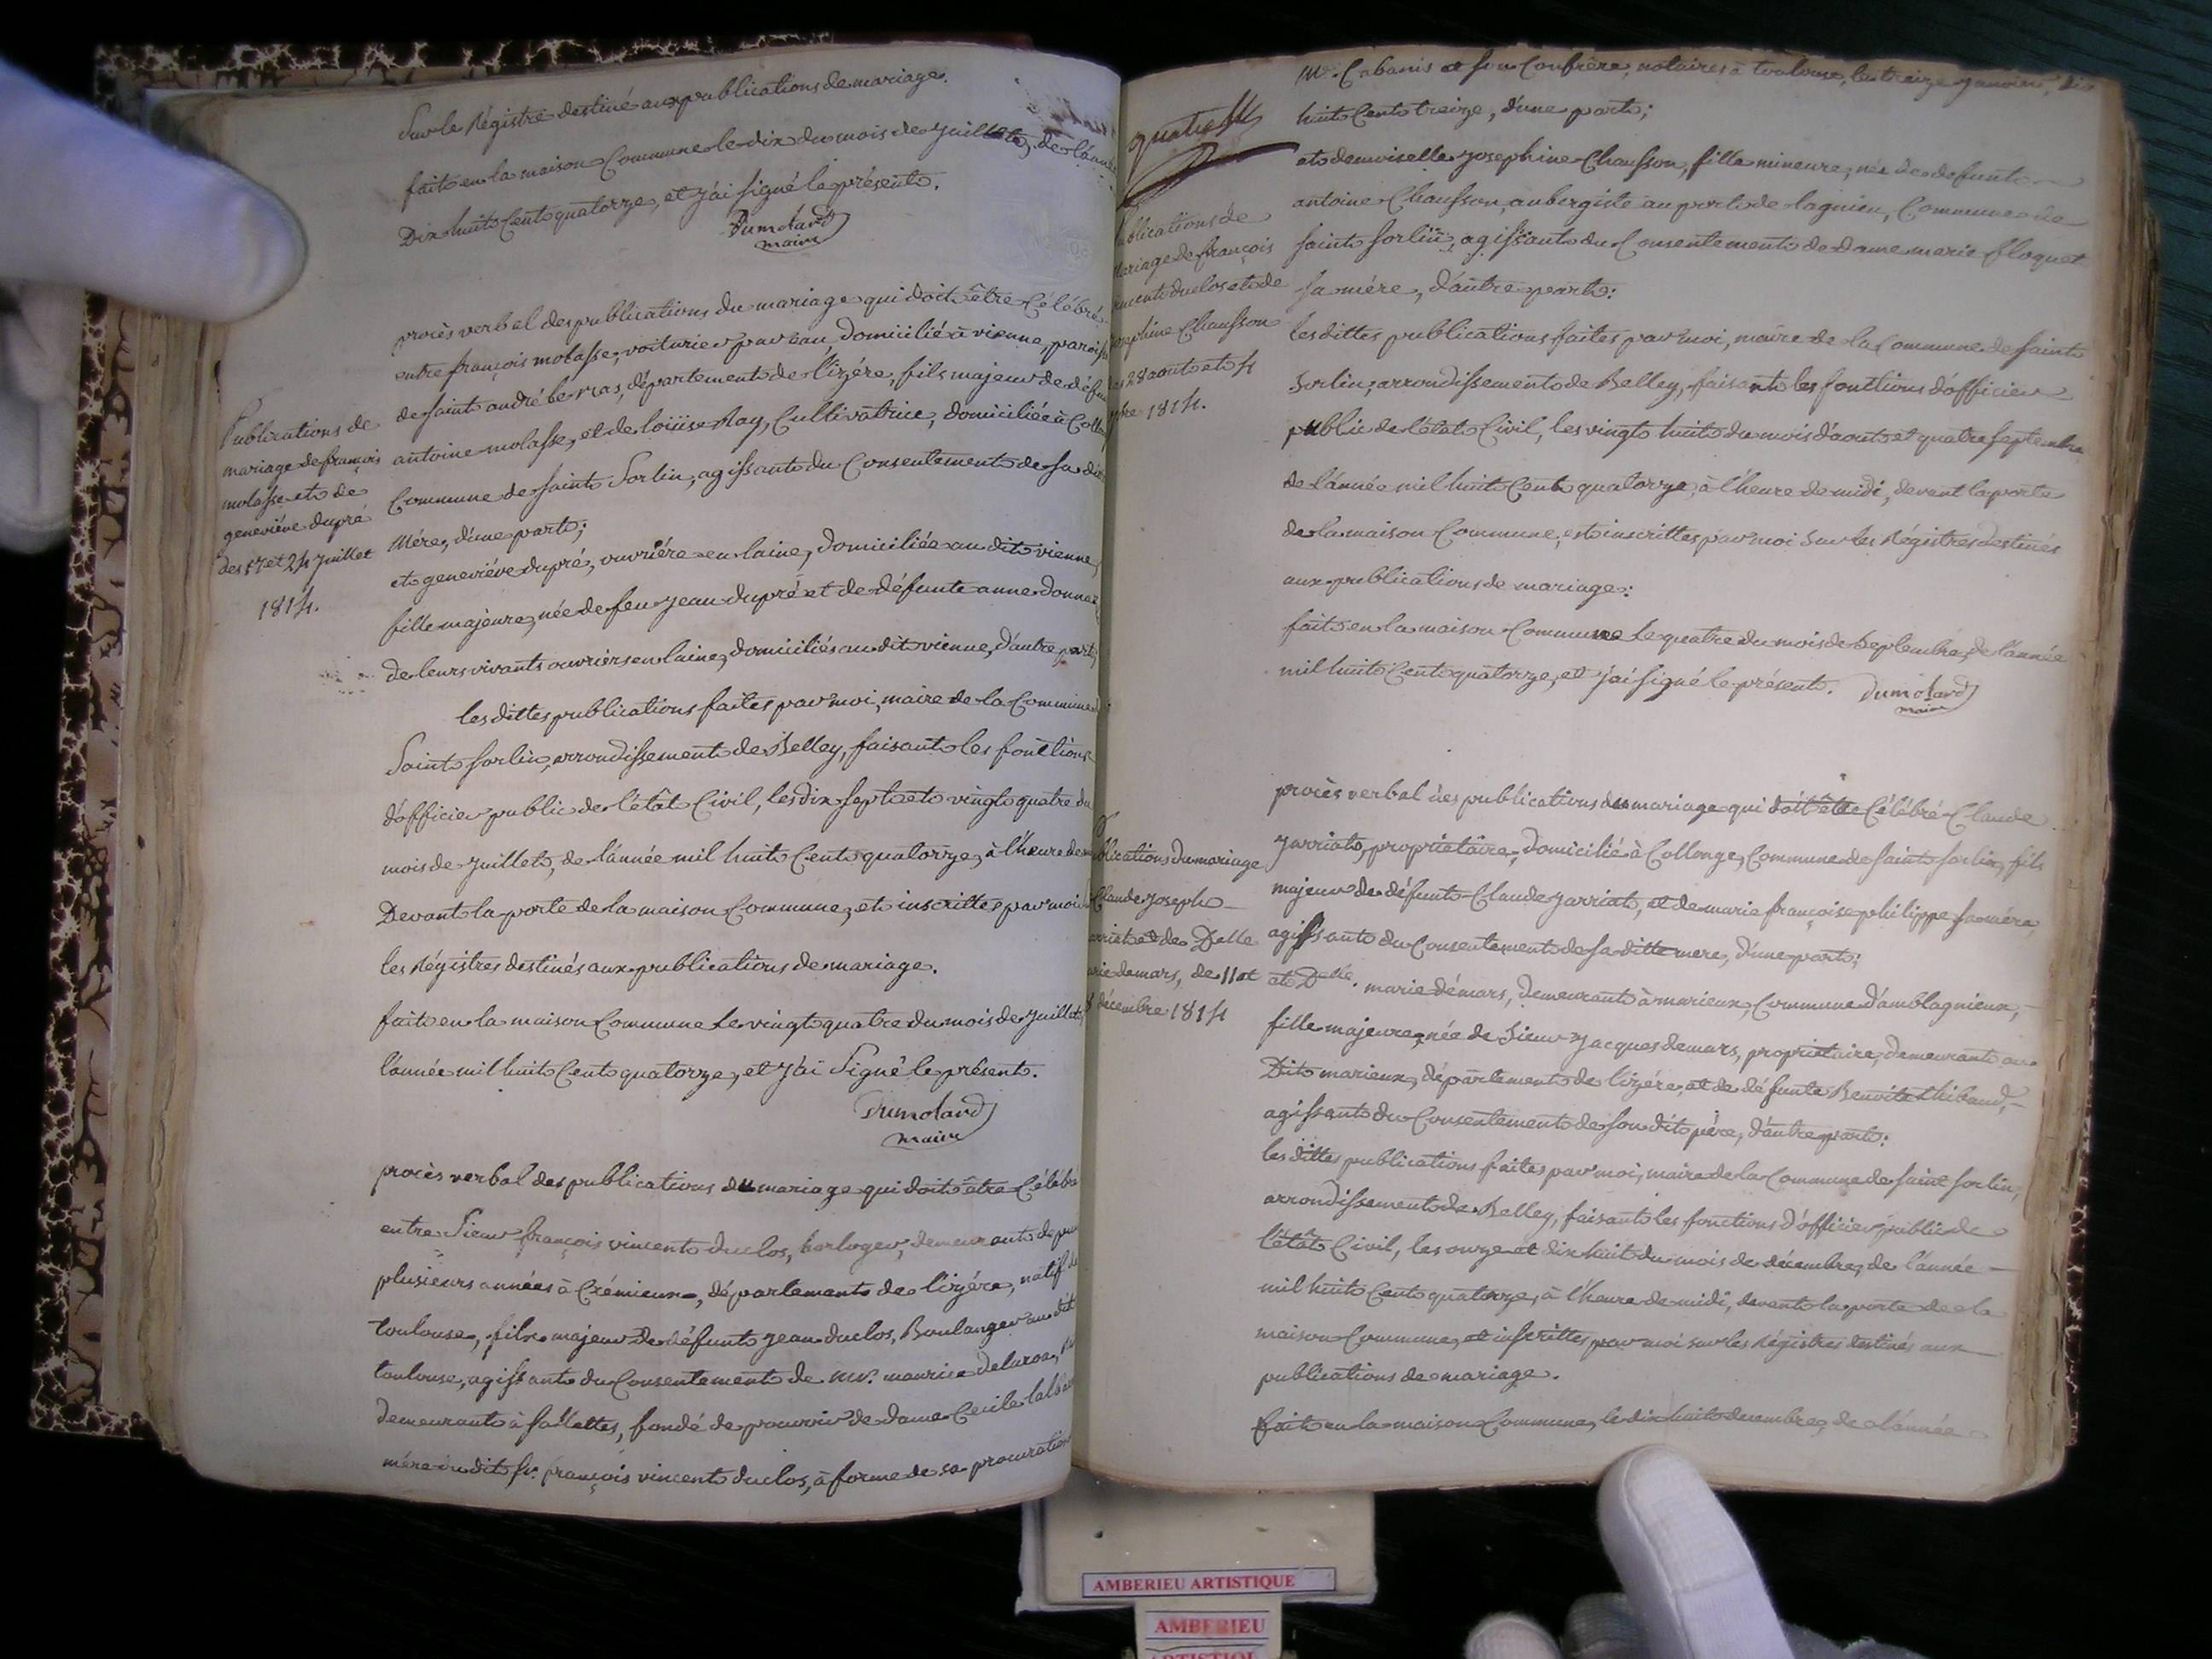 Sur le Régistre destiné aux publications de mariage.
fait en la maison Commune le dix du mois de juillet, de l'année
Dix huit Cent quatorze, et j'ai signé le présent.
Dumolard
maire
Publications de
mariage de françois
molasse et de
geneviéve dupré
des 17 et 24 juillet
1814.
procès verbal des publications du mariage qui doit être Célébré
entre françois molasse, voiturier par eau, domicilié à vienne, paroisse
de saint andré le bas, département de l'izére, fils majeur de défunt
antoine molasse, et de loüise Ray, Cultivatrice, domiciliée à
Commune de saint Sorlin, agissant du Consentement de sa dite
Mére, d'une part;
et geneviéve dupré, ouvriére en laine, domiciliée au dit vienne,
fille majeure, née de feu jean dupré et de défunte anne
de leurs vivants ouvriers en laine, domiciliés au dit vienne, d'autre part,
les dittes publications faites par moi, maire de la Commune
Saint sorlin, arrondissement de Belley, faisant les fonctions
d'officier public de l'état Civil, les dix sept et vingt quatre du
mois de juillet, de l'année mil huit Cent quatorze, à l'heure de
Devant la porte de la maison Commune, et inscrittes par moi
les Régistres destinés aux publications de mariage.
fait en la maison Commune le vingt quatre du mois de juillet,
l'année mil huit Cent quatorze, et j'ai Signé le présent.
Dumolard
maire
procès verbal des publications du mariage qui doit être Célébré
entre Sieur françois vincent duclos, horloger, demeurant depuis
plusieurs années à Crémieux, département de l'izére, natif de
toulouse, fils majeur de défunt jean duclos, Boulanger au dit
toulouse, agissant du Consentement de mr. maurice
demeurant à sablettes, fondé de pouvoir de dame Cecile
mére du dit sr. françois vincent duclos, à forme de sa procuration
quatre
mr. Cabanis et son Confrère, notaires à toulouse, le treize janvier, dix
huit Cent treize, d'une part;
ublications de
ariage de françois
incent duclos et de
osephine Chausson
28 aout et 4
bre 1814.
et demoiselle josephine Chausson, fille mineure, née de defunt
antoine Chausson, aubergiste au port de lagnieu, Commune de
saint sorlin, agissant du Consentement de dame marie Cloquet
sa mére, d'autre part:
les dittes publications faites par moi, maire de la Commune de saint
Sorlin, arrondissement de Belley, faisant les fonctions d'officier
public de l'état Civil, les vingt huit du mois d'aout et quatre septembre
de l'année mil huit Cent quatorze, à l'heure de midi, devant la porte
de la maison Commune, et inscrittes par moi sur les Régistres destinés
aux publications de mariage:
fait en la maison Commune le quatre du mois de Septembre, de l'année
mil huit Cent quatorze, et j'ai signé le présent. Dumolard
maire
ublications du mariage
Claude Joseph
arriat et de Delle
arie demars, de 11 et
8 décembre 1814
procès verbal des publications du mariage qui doit être Célébré Claude
jarriat, propriétaire, domicilié à Collonge, Commune de saint sorlin, fils
majeur de défunt Claude jarriat, et de marie françoise philippe sa mére
agissant du Consentement de sa ditte mere, d'une part;
et Dlle. marie démars, demeurant à marieux, Commune d'amblagnieux,
fille majeure, née de Sieur jacques demars, propriétaire, demeurant au
Dit marieux, département de l'izére, et de défunte Benoite thibaud,
agissant du Consentement de son dit père, d'autre part:
les dittes publications faites par moi, maire de la Commune de saint sorlin,
arrondissement de Belley, faisant les fonctions d'officier public de
l'état Civil, les onze et dix huit du mois de décembre, de l'année
mil huit Cent quatorze, à l'heure de midi, devant la porte de la
maison Commune, et inscrittes par moi sur les Régistres destinés aux
publications de mariage.
fait en la maison Commune, le dix huit decembre, de l'année
AMBERIEU ARTISTIQUE
AMBERIEU
ARTISTIQUE